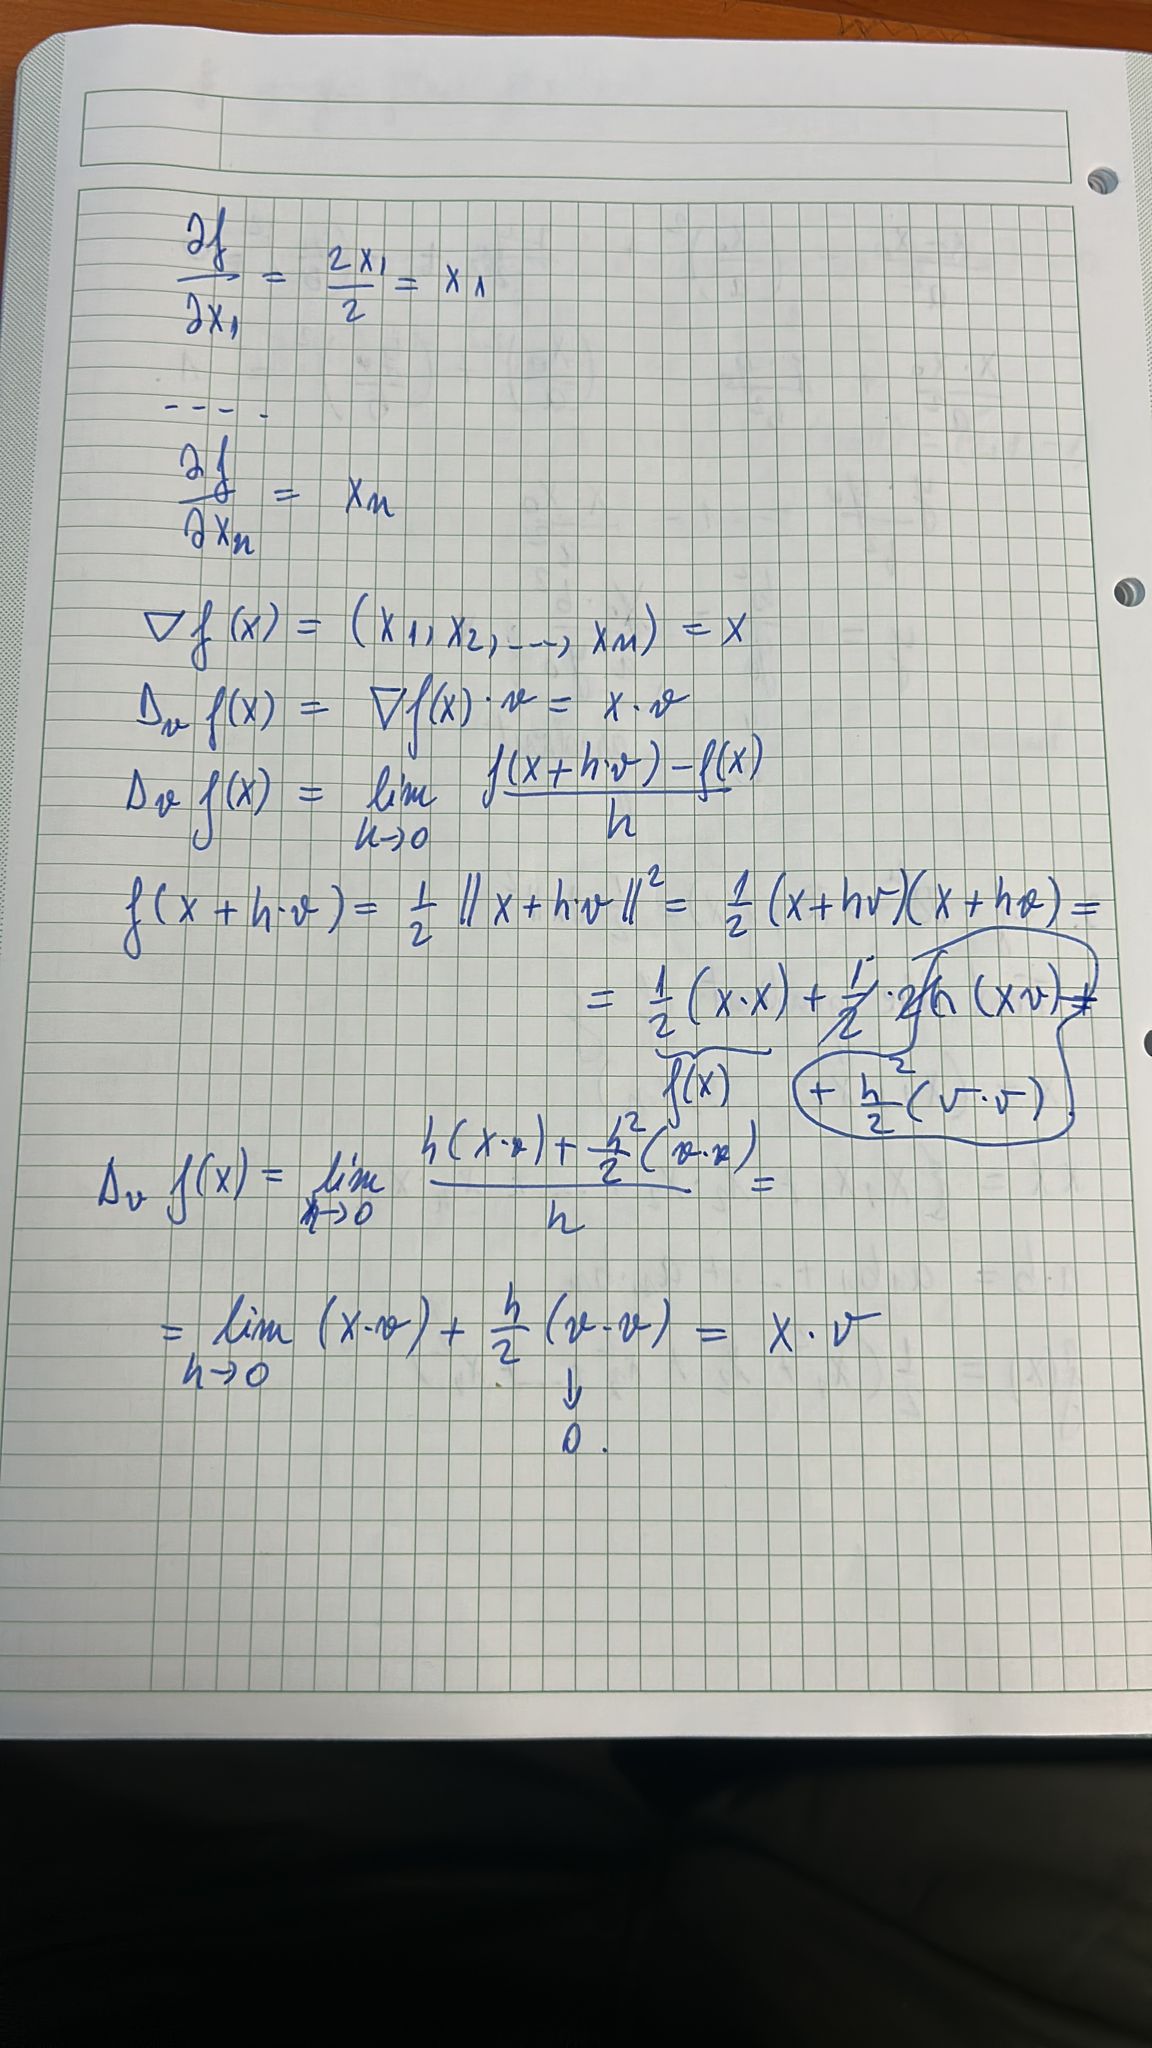 ∂f/∂x₁ = 2x₁/2 = x₁
- - - -
∂f/∂xₙ = xₙ
∇f(x) = (x₁, x₂, ..., xₙ) = x
Dᵥ f(x) = ∇f(x) · v = x · v
Dᵥ f(x) = lim h→0 (f(x + h·v) − f(x))/h
f(x + h·v) = 1/2 ‖x + h·v‖² = 1/2 (x + hv)(x + hv) =
= 1/2 (x·x) + 1/2 · 2h (xv) +
f(x) + h²/2 (v·v)
Dᵥ f(x) = lim h→0 (h(x·v) + h²/2 (v·v))/h =
= lim h→0 (x·v) + h/2 (v·v) = x · v
↓
0.